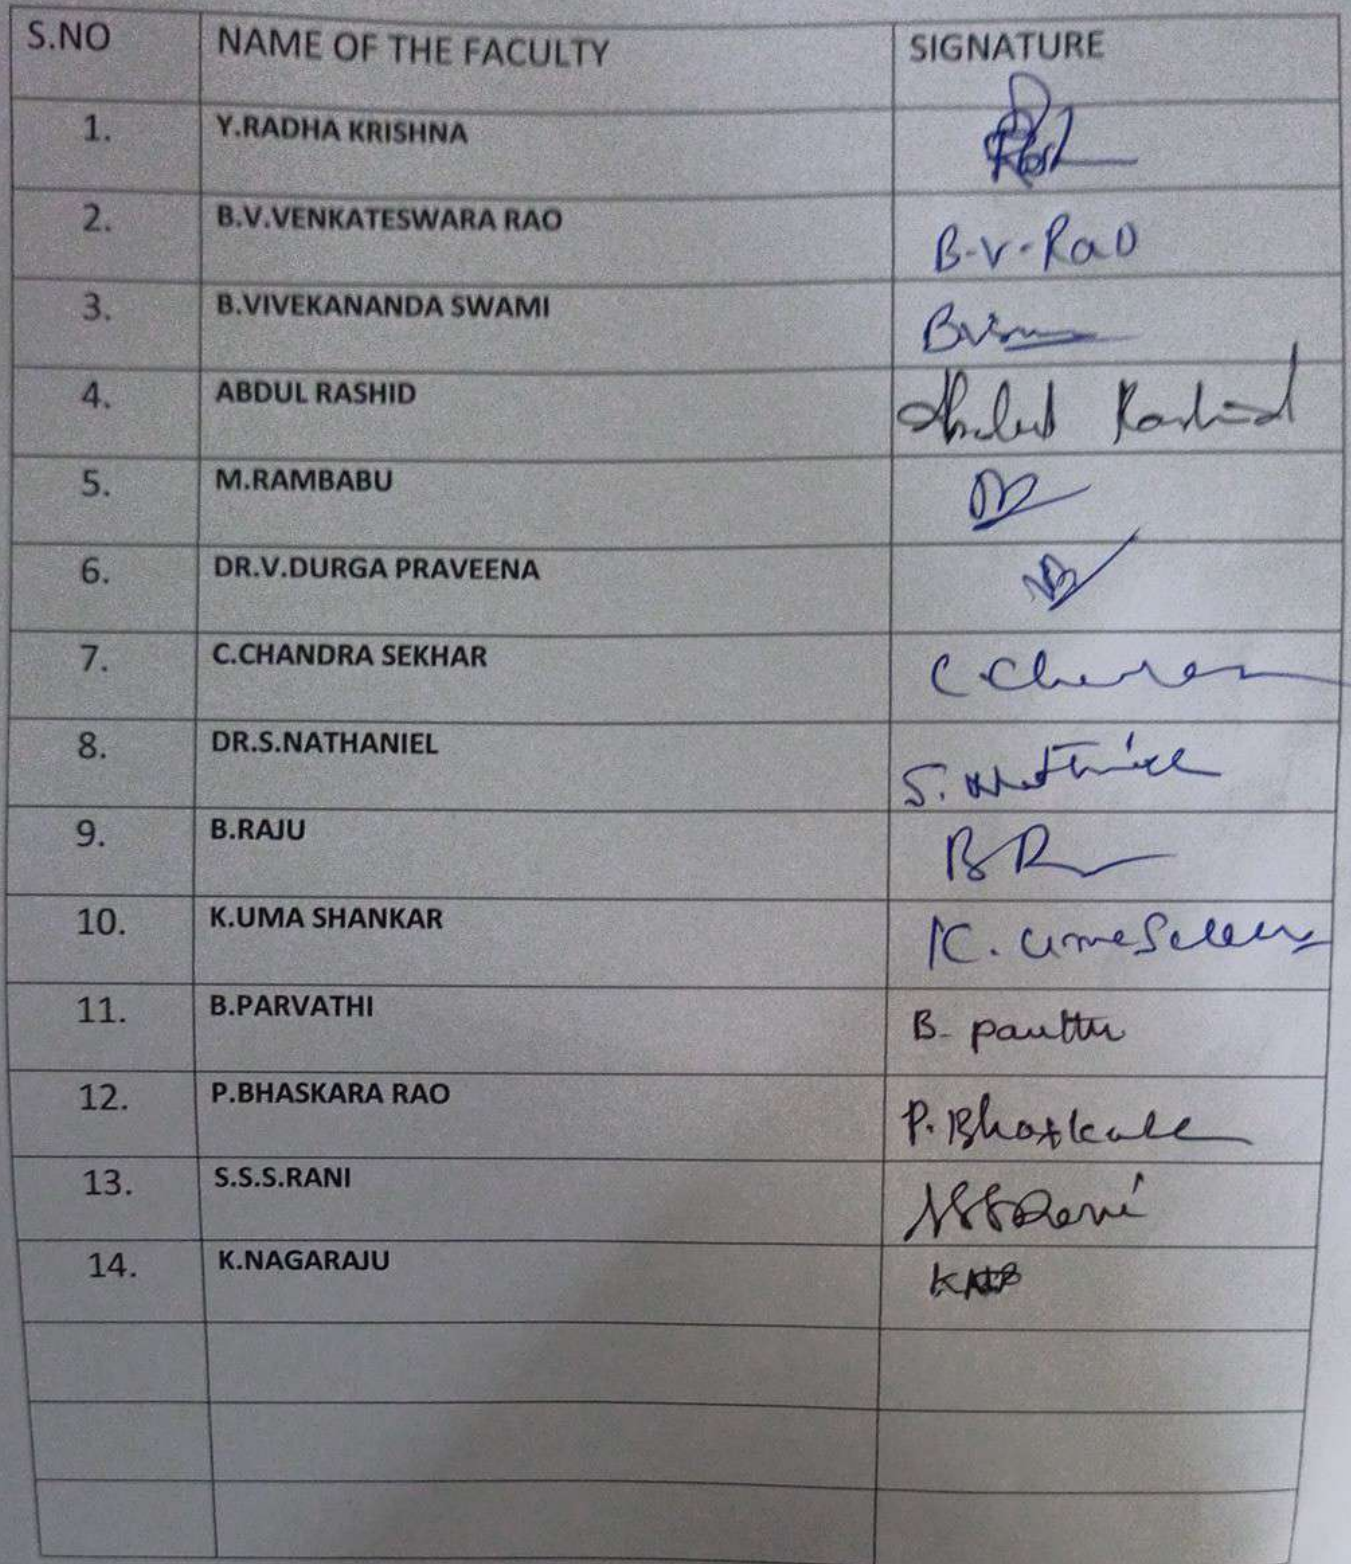 S.NO NAME OF THE FACULTY SIGNATURE
1. Y.RADHA KRISHNA
2. B.V.VENKATESWARA RAO B-V-Rao
3. B.VIVEKANANDA SWAMI
4. ABDUL RASHID Abdul Rashid
5. M.RAMBABU
6. DR.V.DURGA PRAVEENA
7. C.CHANDRA SEKHAR
8. DR.S.NATHANIEL
9. B.RAJU
10. K.UMA SHANKAR
11. B.PARVATHI
12. P.BHASKARA RAO
13. S.S.S.RANI SSSRani
14. K.NAGARAJU